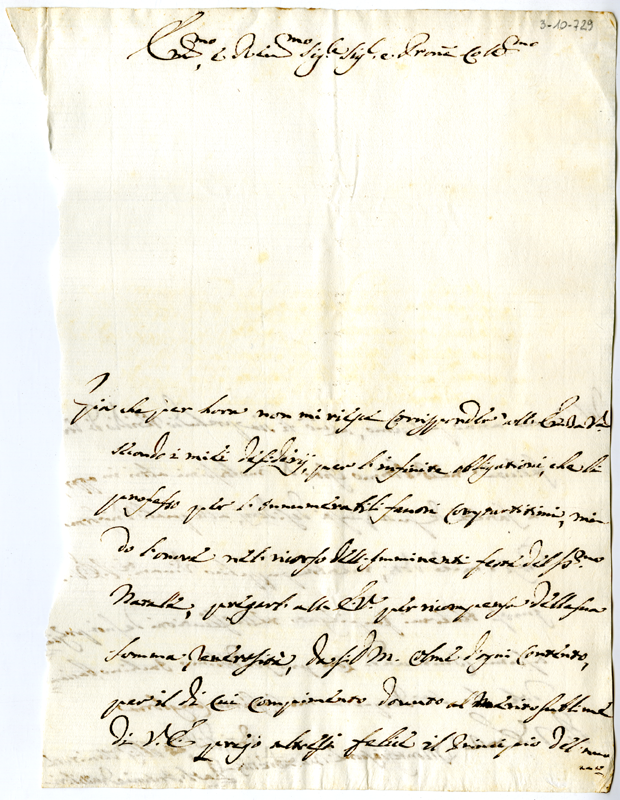 3-10-729
Em.mo e Rev.mo Sig.re Sig.r e Prone Col.mo
Gia che per hora non mi riesce corrispondere alle E.za V.ra
secondo i miei desiderij, per l'infinite obligationi, che li
professo per l'innumerabili favori compartitimi, mi
do l'honore nel ricorso dell'imminenti feste del SS.mo
Natale, pregarli alla E.V. per ricompensa della sua
somma generosità, da S.D.M. colme d'ogni contento,
per il di cui compimento dovuto al merito sublime
di V.E. prego altresi felice il Principio del nuovo